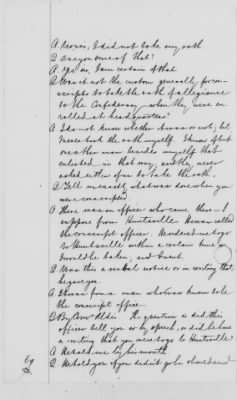 A No sir, I did not take any oath
Q Are you sure of that?
A Yes sir, I am certain of that
Q Was it not the custom generally for con-
scripts to take the oath of allegiance
to the Confederacy when they were en-
rolled at headquarters?
A I do not know whether it was or not; but
I never took the oath myself. I know of but
one other man besides myself that
enlisted in that way, and they never
asked either of us to take the oath.
Q Tell us exactly what was done when you
were conscripted
A There was an officer who came there - I
suppose from Huntsville. He was called
the conscript officer. He ordered me to go
to Huntsville within a certain time or
I would be taken, and I went.
Q Was this a verbal notice or in writing that
he gave you.
A It was from a man who was known to be
the conscript officer.
Q By Com'r Aldis. The question is did this
officer tell you so by speech, or did he have
a writing that you were to go to Huntsville
A He told me by his mouth
Q He told you if you did not go he would send